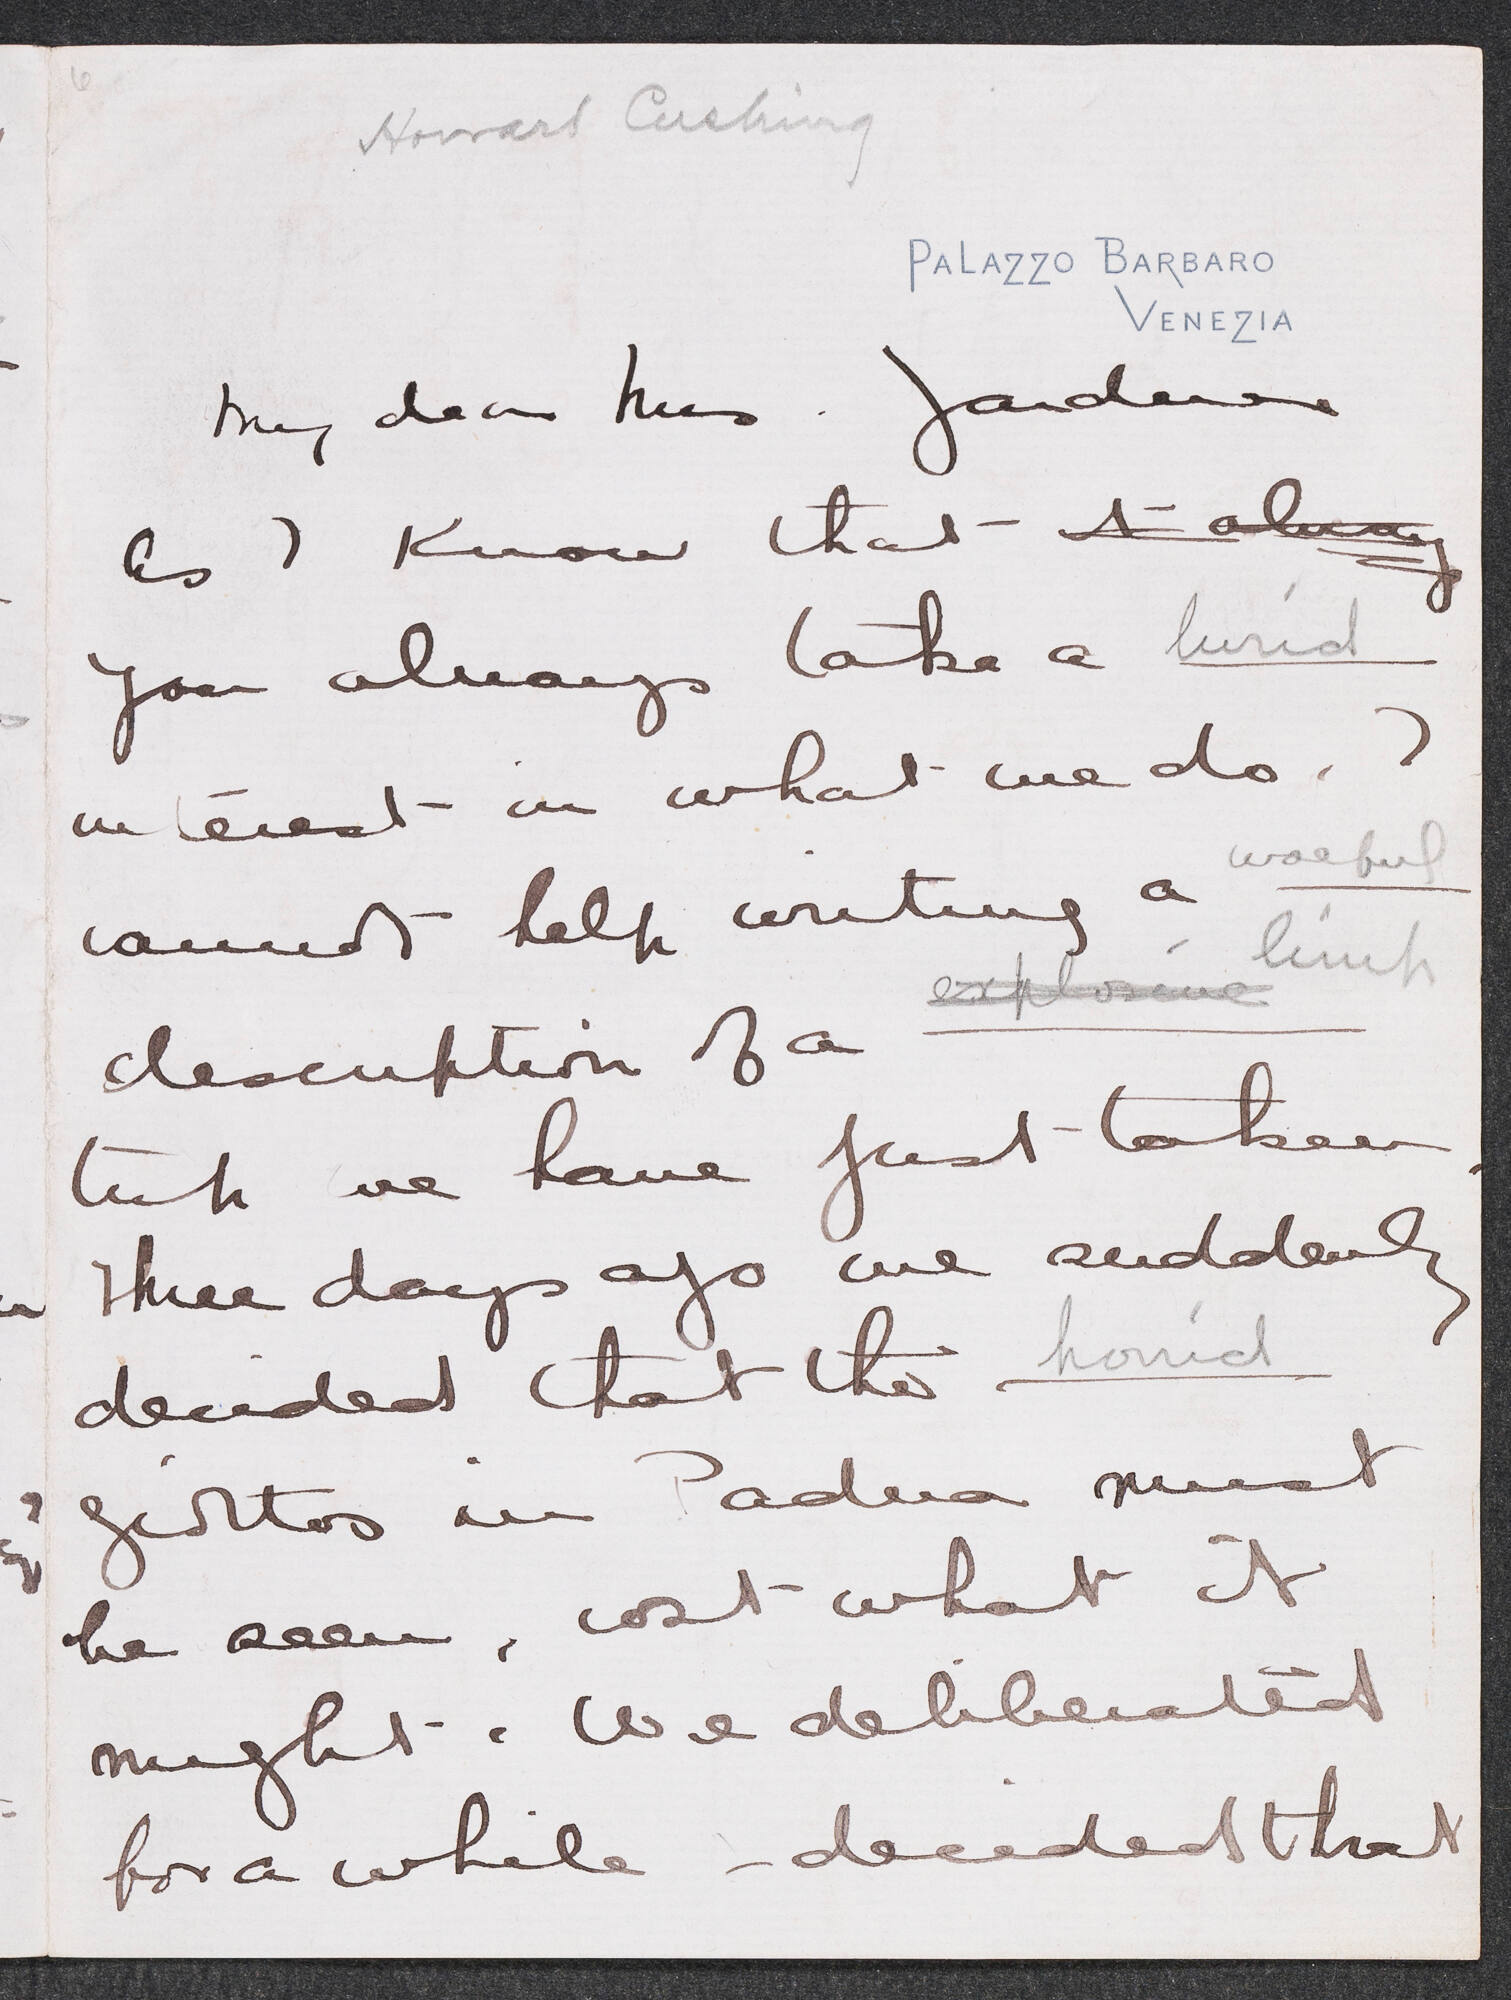 6
Howard Cushing
PALAZZO BARBARO
VENEZIA
My dear Mrs. Gardener
As I know that t alway
you always take a lurid
interest in what we do. I
cannot help writing a woeful
description of a explosive limp
trip we have just taken.
Three days ago we suddenly
decided that the horrid
giottos in Padua must
be seen, cost what it
might. We deliberated
for a while - decided that